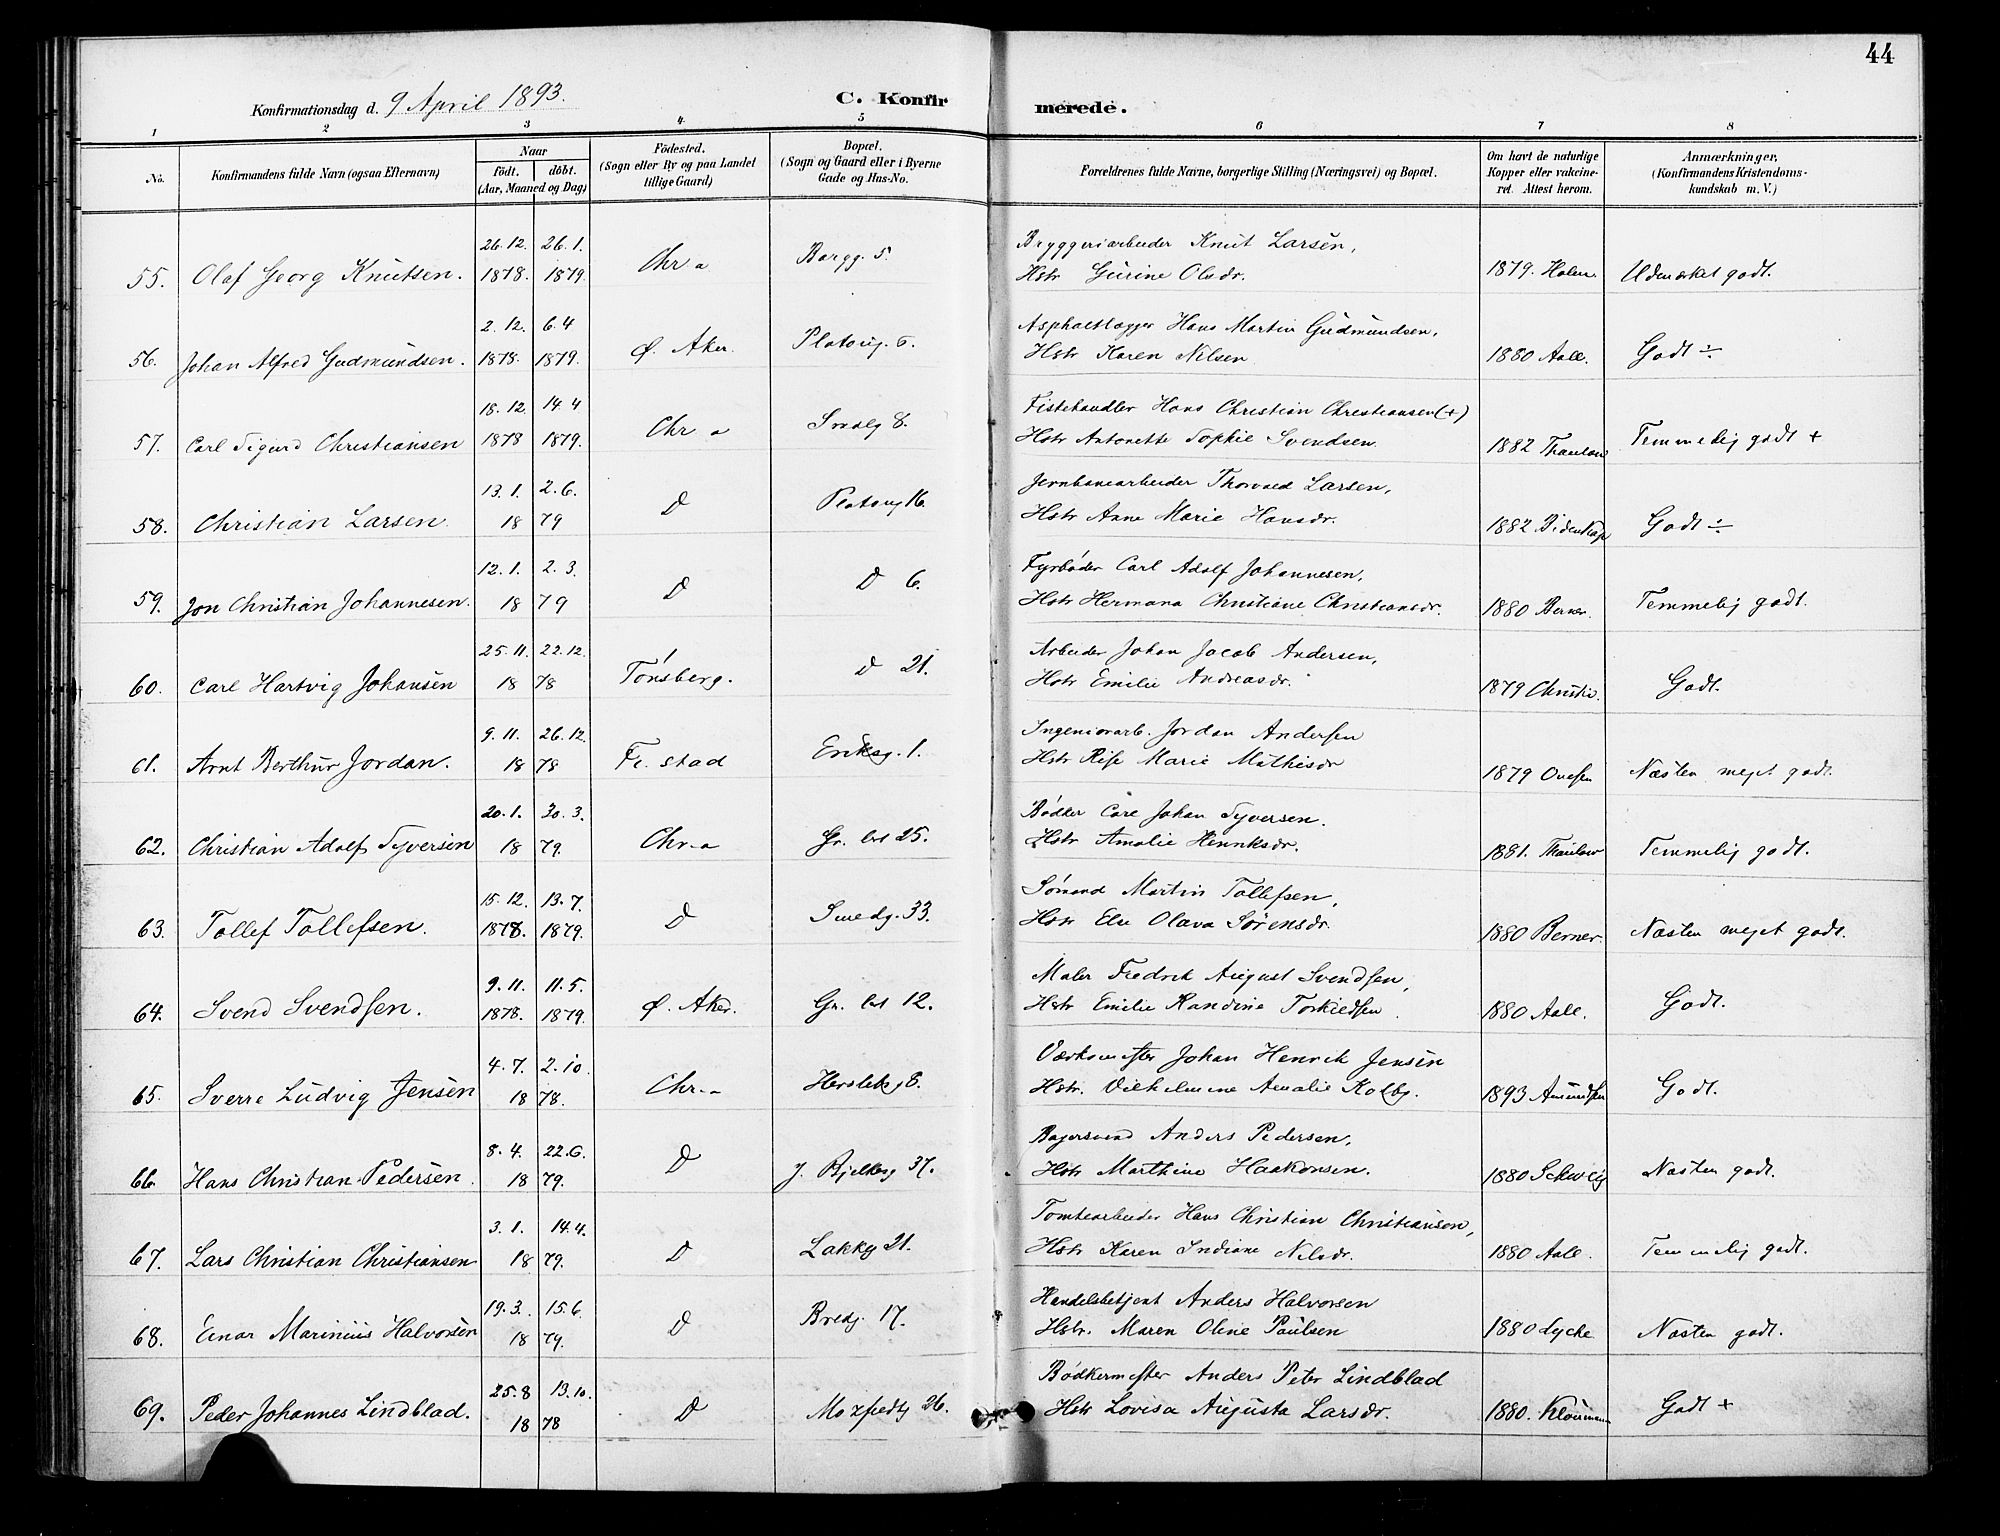 44
Konfirmationsdag d. 9 April 1893.
C. Konfir
merede.
1 2 3 4. 5 6 7 8
No.
Konfirmandens fulde Navn (ogsaa Efternavn)
Naar
födt. döbt.
(Aar, Maaned og Dag)
Födested.
(Sogn eller By og paa Landet
tillige Gaard)
Bopæl.
(Sogn og Gaard eller i Byerne
Gade og Hus-No.
Forældrenes fulde Navne, borgerlige Stilling (Næringsvei) og Bopæl.
Om havt de naturlige
Kopper eller vakcine-
ret. Attest herom.
Anmærkninger,
(Konfirmandens Kristendoms-
kundskab m. V.)
26. 12. 26. 1. Bryggeriarbeider Knut Larsen,
55. Olaf Georg Knutsen. 1878. 1879. Chr a Borgg. 5. Hstr Gurine Olsdr. 1879. Holm Udmerket godt.
2. 12. 6. 4 Asphaltlægger Hans Martin Gudmundsen,
56. Johan Alfred Gudmundsen. 1878. 1879. Ø. Aker. Platoug. 6. Hstr Karen Nilsen 1880 Aall. Godt ÷
18. 12. 14. 4 Fiskehandler Hans Christian Christiansen (+)
57. Carl Sigurd Christiansen 1878 1879. Chr a 8. Hstr Antonette Sophie Svendsen. 1882 Thaulow Temmelig godt +
13. 1. 2. 6. Jernbanearbeider Thorvald Larsen,
58. Christian Larsen. 18 79 D Platoug 16. Hstr Anne Marie Hansdr. 1882 Bidenkap Godt ÷
12. 1. 2. 3. Fyrbøder Carl Adolf Johannesen,
59. Jon Christian Johannesen. 18 79 D D 6. Hstr Hermana Christiane Christiansdr. 1880 Berner Temmelig godt.
25. 11. 22. 12. Arbeider Johan Jacob Andersen,
60. Carl Hartvig Johansen 18 78 Tønsberg. D 21. Hstr Emilie Andreasdr. 1879 Christie. Godt.
9. 11. 26. 12. Ingeniorarb. Jordan Andersen
61. Arnt Berthur Jordan. 18 78 Fr. stad Eriksg. 1. Hstr Rise Marie Mathisdr 1879 Ovesen Næsten meget godt.
20. 1. 30. 3. Bødker Carl Johan Syversen.
62. Christian Adolf Syversen 18 79. Chr. a Gr. lret 25. Hstr Amalie Henriksdr. 1881. Thaulow Temmelig godt.
15. 12. 13. 7. Sømand Martin Tollefsen,
63. Tollef Tollefsen. 1878. 1879. D Smedg. 33. Hstr Else Olava Sørensdr. 1880 Berner. Næsten meget godt.
9. 11. 11. 5. Maler Fredrik August Svendsen,
64. Svend Svendsen. 1878. 1879. Ø. Aker. Gr. lret 12. Hstr Emilie Randine Torkildsen 1880 Aall. Godt.
4. 7. 2. 10. Værkmester Johan Henrik Jensen
65. Sverre Ludvig Jensen 18 78. Chr. a Herslebg 8. Hstr. Vilhelmine Amalie Kolby. 1893 Amundsen Godt.
8. 4. 22. 6. Bagersvend Anders Pedersen,
66. Hans Christian Pedersen. 18 79. D J. Bjelkesg 37. Hstr Marthine Haakonsen. 1880 Schweig Næsten godt.
3. 1. 14. 4. Tomtearbeider Hans Christian Christiansen,
67. Lars Christian Christiansen 18 79. D Lakkeg 21. Hstr Karen Indiane Nilsdr. 1880 Aall. Temmelig godt.
19. 3. 15. 6. Handelsbetjent Anders Halvorsen
68. Einar Marinius Halvorsen 18 79. D Bredg. 17. Hstr. Maren Oline Paulsen 1880 Lyche Næsten godt.
25. 8 13. 10. Bødkermester Anders Peter Lindblad
69. Peder Johannes Lindblad. 18 78 D 26. Hstr Lovisa Augusta Larsdr. 1880. Kloumann Godt +